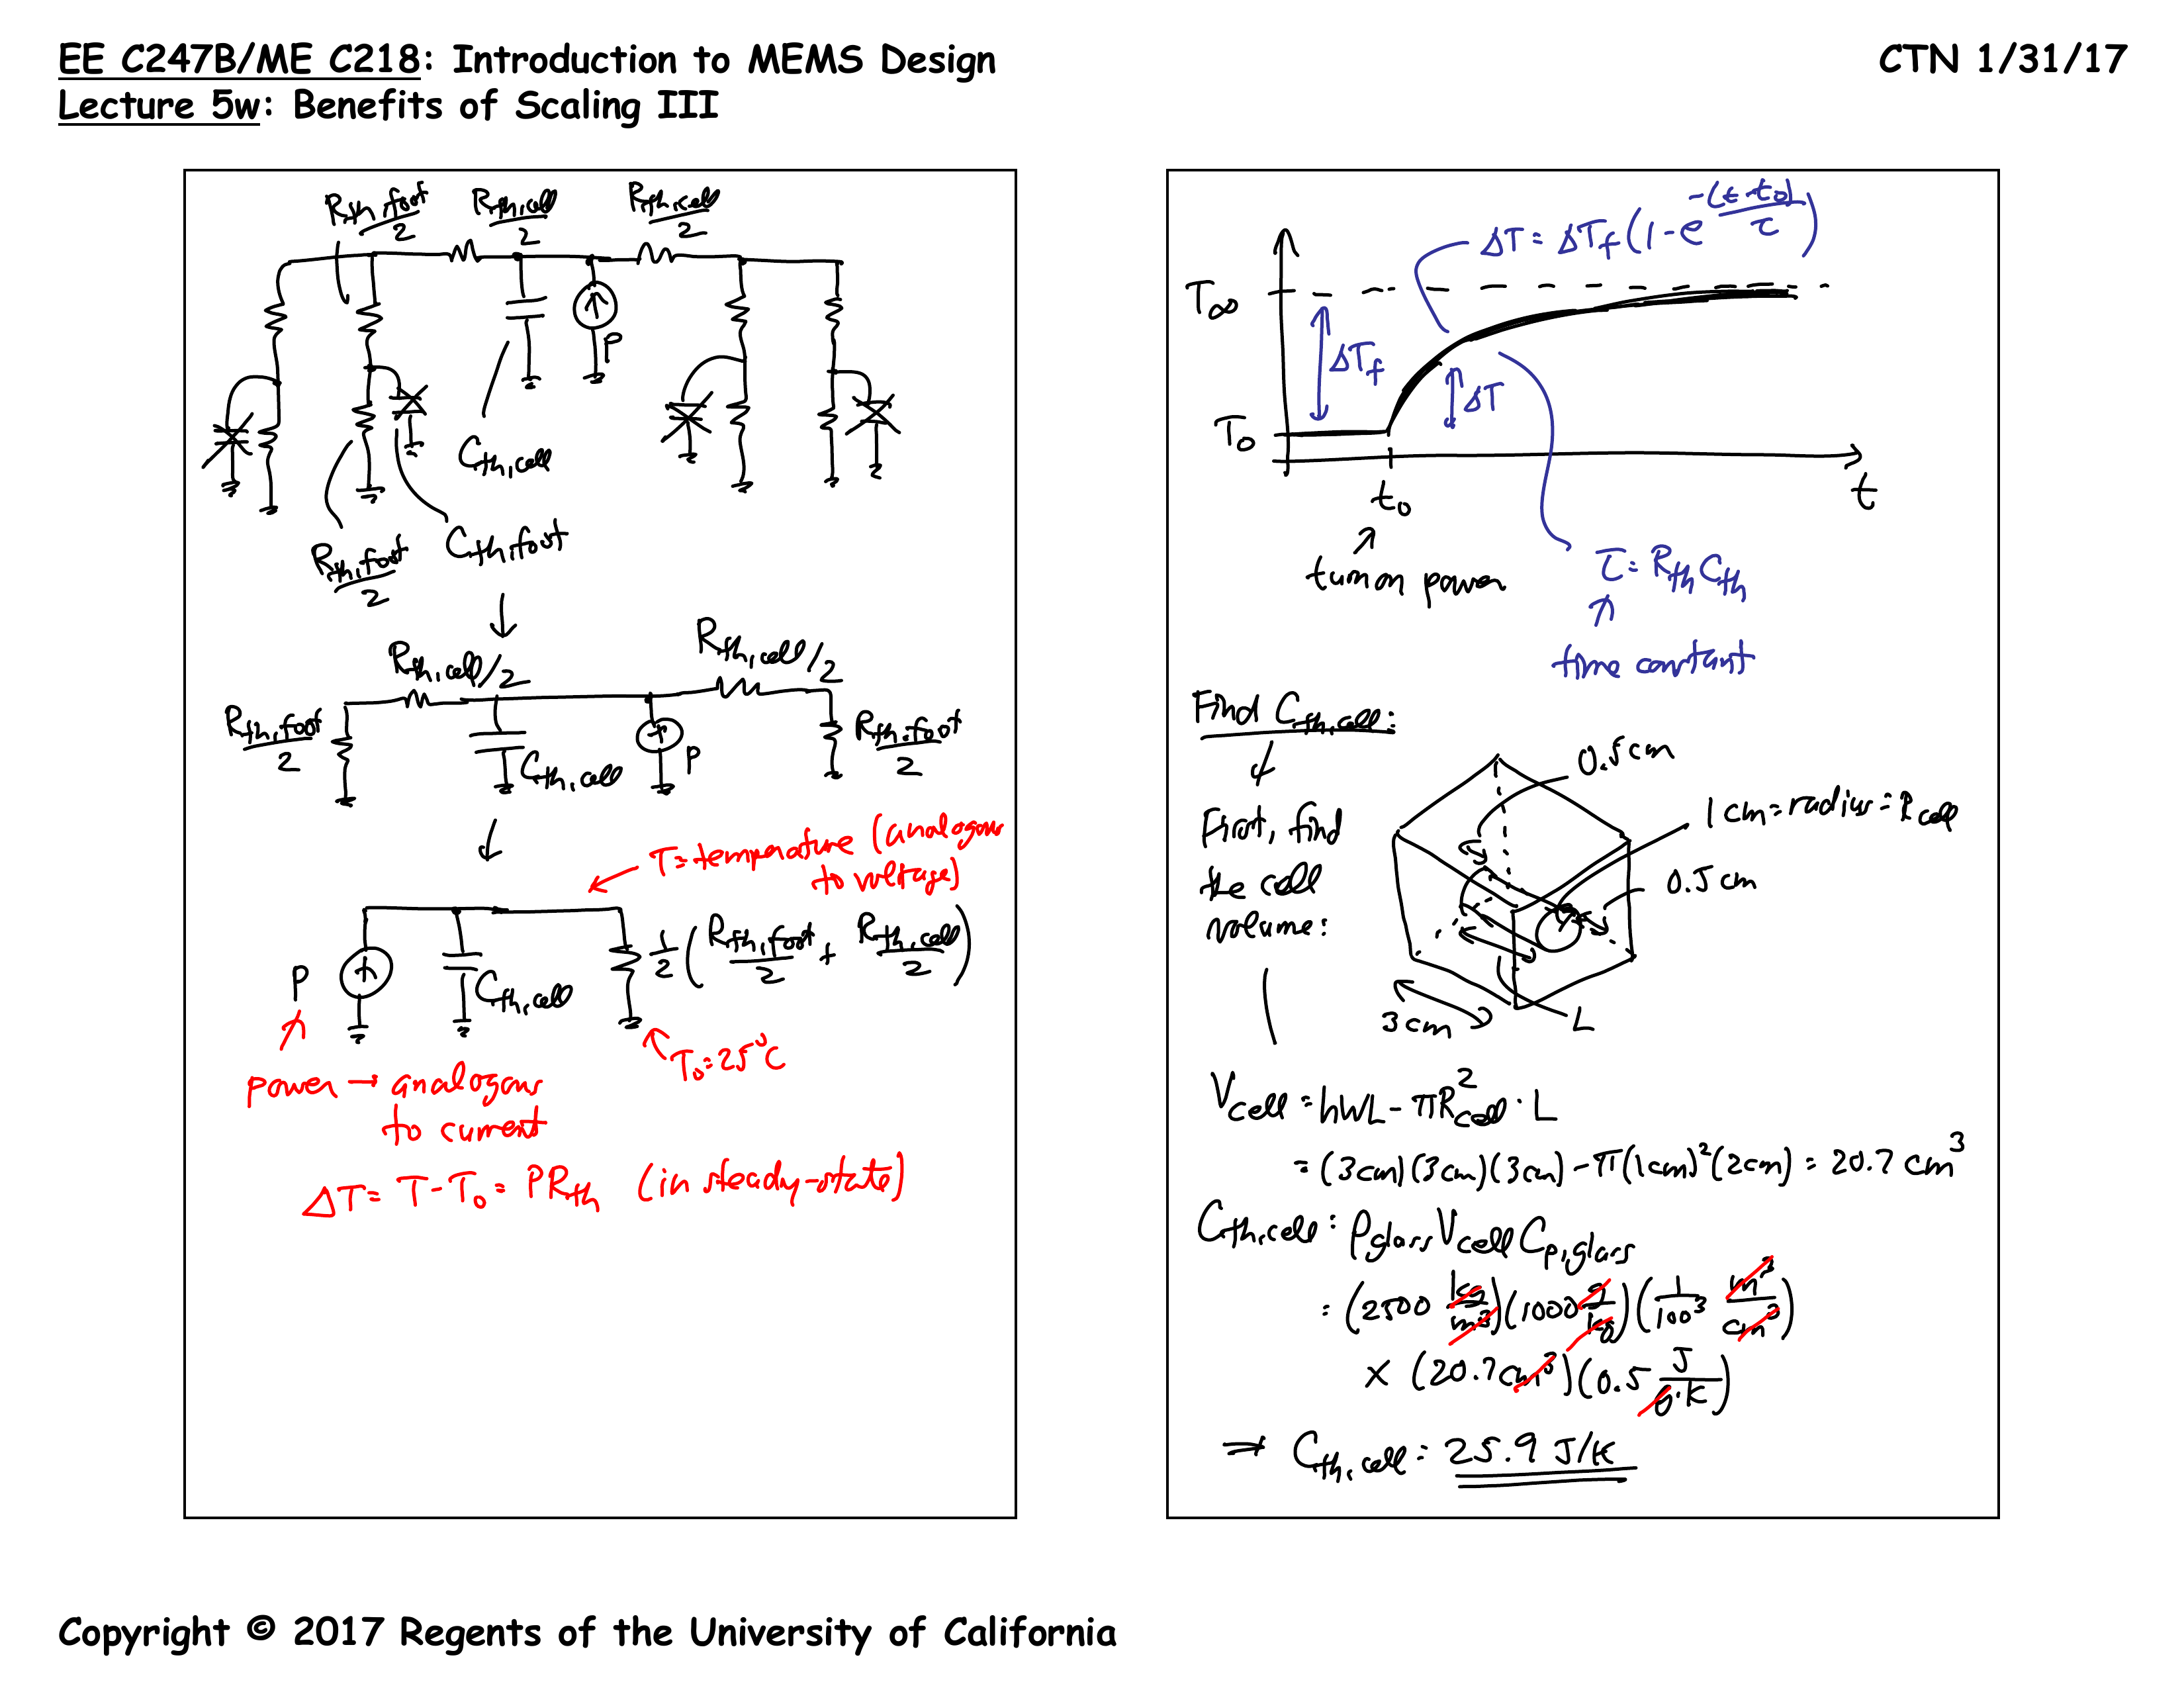 EE C247B/ME C218: Introduction to MEMS Design
CTN 1/31/17
Lecture 5w: Benefits of Scaling III
R_th,foot/2
R_th,cell/2
R_th,cell/2
P
C_th,cell
R_th,foot/2
C_th,foot
R_th,cell/2
R_th,cell/2
R_th,foot/2
C_th,cell
P
R_th,foot/2
T = temperature (analogous
to voltage)
P
C_th,cell
1/2 (R_th,foot/2 + R_th,cell/2)
T₀ = 25°C
power → analogous
to current
ΔT = T - T₀ = PR_th (in steady-state)
ΔT = ΔT_f (1 - e^(-(t-t₀)/τ))
T∞
ΔT_f
ΔT
T₀
t₀
t
turn on power
τ = R_th C_th
time constant
Find C_th,cell:
0.5cm
1cm = radius = R_cell
First, find
the cell
volume:
0.5cm
3cm
L
V_cell = hWL - πR²_cell · L
= (3cm)(3cm)(3cm) - π(1cm)²(2cm) = 20.7 cm³
C_th,cell = ρ_glass V_cell C_p,glass
= (2500 kg/m³)(1000 g/kg)(1/100³ m³/cm³)
× (20.7cm³)(0.5 J/g·K)
⇒ C_th,cell = 25.9 J/K
Copyright © 2017 Regents of the University of California